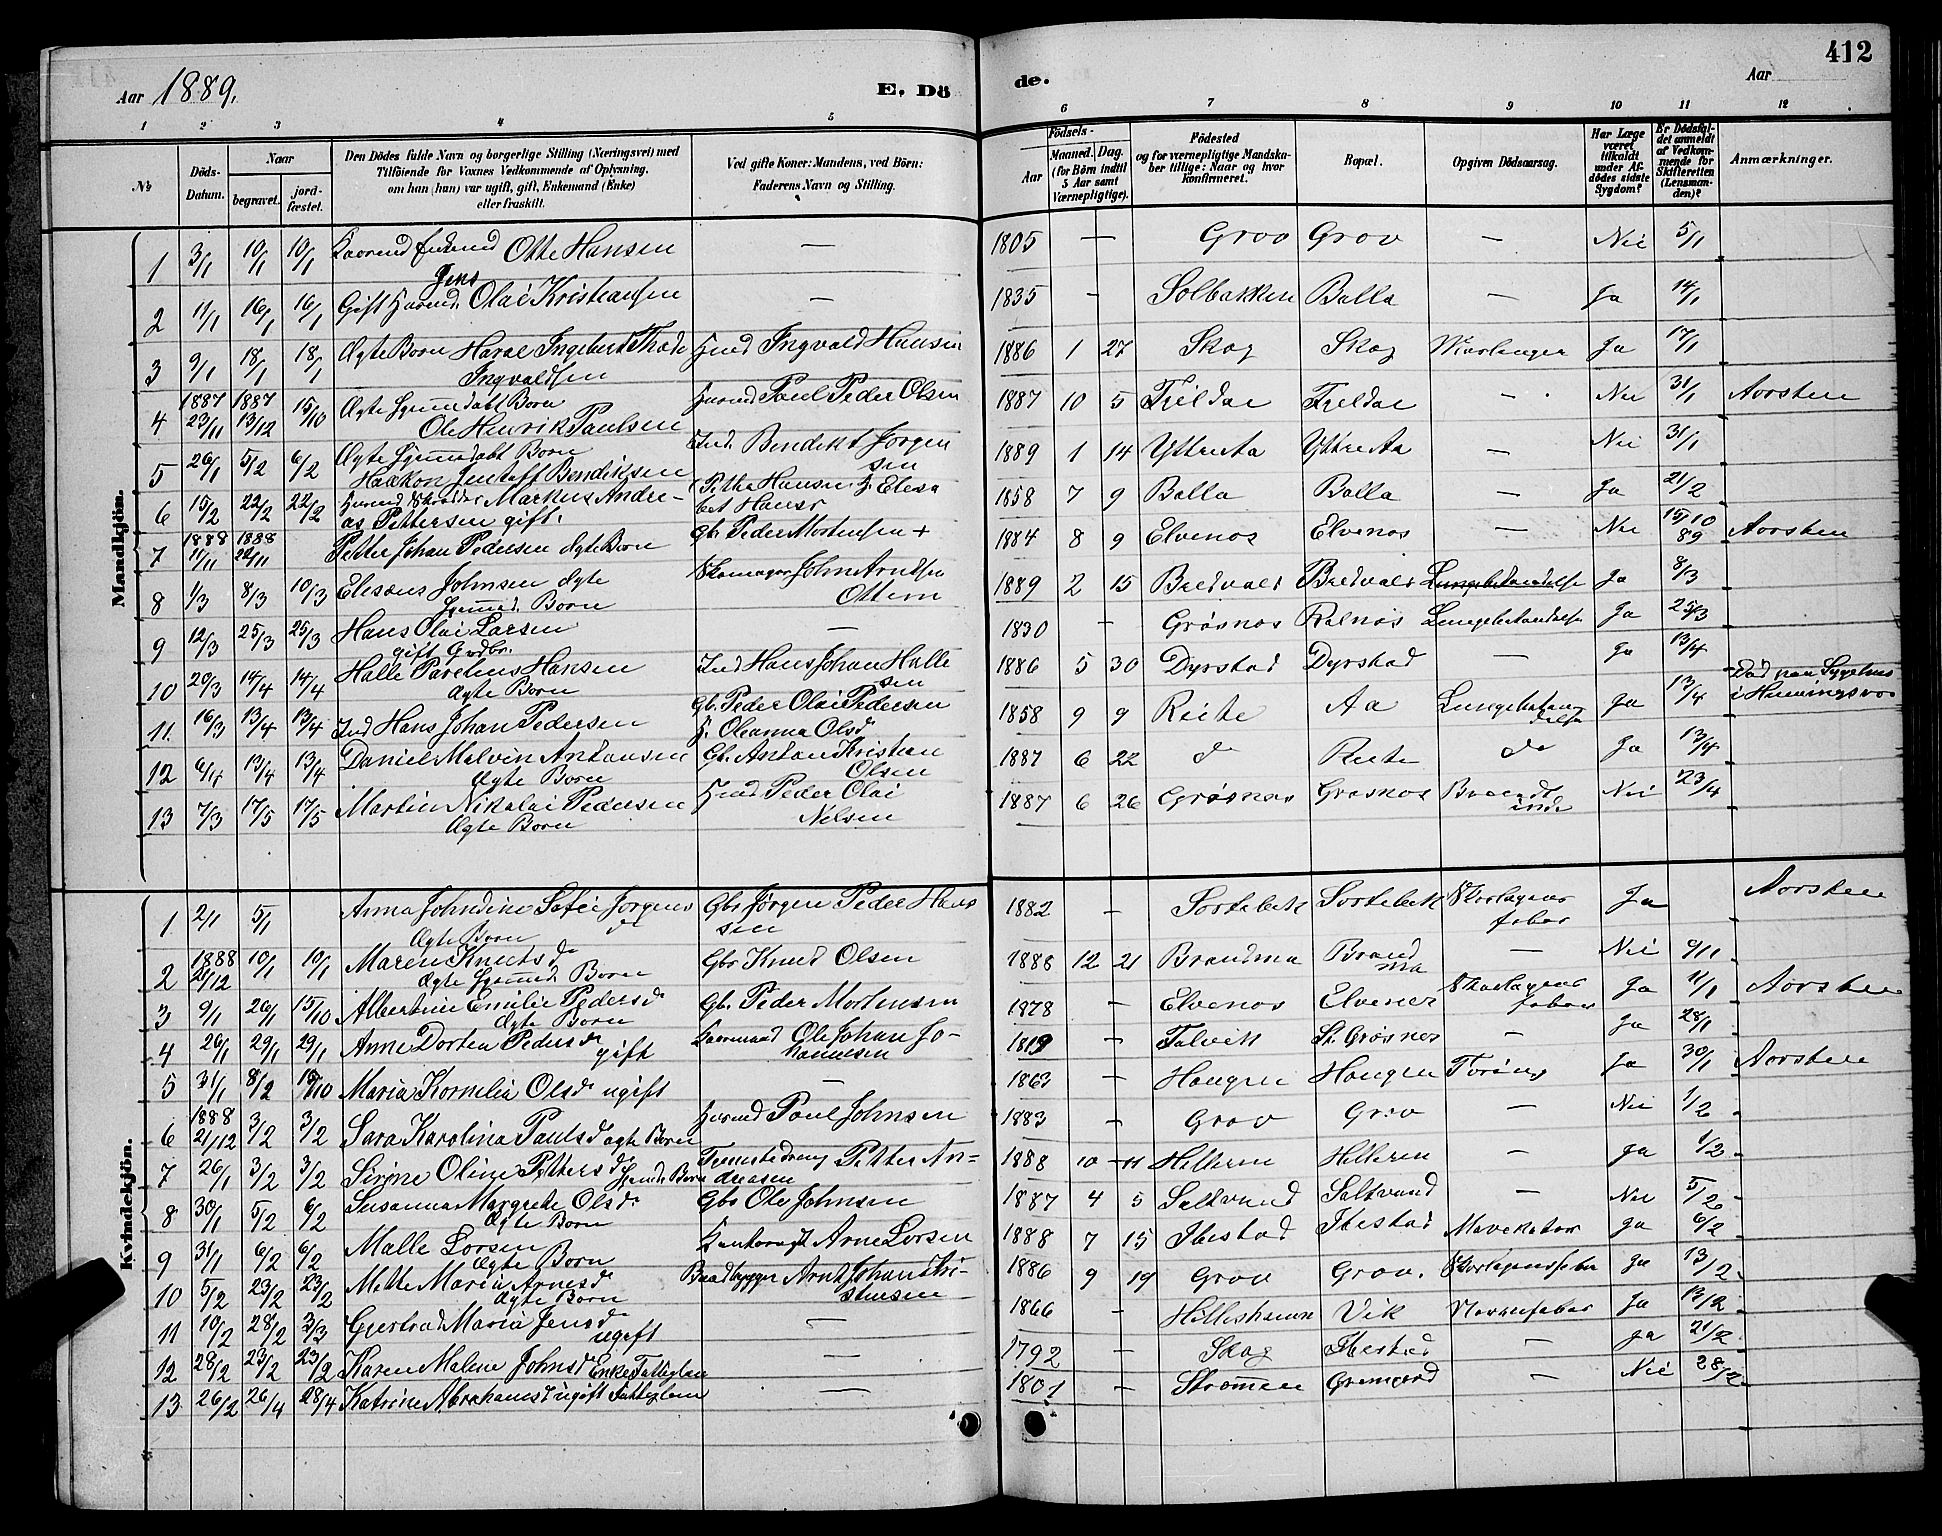 412
Aar 1889.
E. Dö
de.
Aar
1 2 3 4 5 6 7 8 9 10 11 12
No
Döds-Datum.
Naar
begravet.
jord-fæstet.
Den Dödes fulde Navn og borgerlige Stilling (Næringsvei) med
Tilföiende for Voxnes Vedkommende af Oplysning,
om han (hun) var ugift, gift, Enkemand (Enke)
eller fraskilt.
Ved gifte Koner: Mandens, ved Börn:
Faderens Navn og Stilling.
Födsels-
Aar
Maaned. Dag.
(for Börn indtil
5 Aar samt
Værnepligtige).
Födested
og for værnepligtige Mandska-
ber tillige: Naar og hvor
konfirmeret.
Bopæl.
Opgiven Dödsaarsag.
Har Læge
været
tilkaldt
under Af-
dödes sidste
Sygdom?
Er Dödsfal-
det anmeldt
af Vedkom-
mende for
Skifteretten
(Lensman-
den)?
Anmærkninger.
Mandkjön.
1 3/1 10/1 10/1 Otte Hansen — 1805 — Grov Grov — Nei 5/1
2 11/1 16/1 16/1 Gift Jens Olai Kristiansen — 1835 - Solbakken Balla — Ja 14/1
3 9/1 18/1 18/1 Ægte Barn Ingebert Ingvaldsen Ingvald Hansen 1886 1 27 Skog Skog Ja 17/1
4 1887 23/11 1887 13/12 15/10 Ægte Barn Ole Henrik Paulsen Paul Peder Olsen 1887 10 5 Fjeldar Fjeldar — Nei 31/1
5 26/1 5/2 6/2 Ægte Barn Haakon Gustaff Bendiksen Ind. Bendikt Jörgensen 1889 1 14 Yttre Aa Yttre Aa — Nei 31/1
6 15/2 22/2 22/2 Markus Andreas Pettersen gift. 1858 7 9 Balla Balla — Ja 21/2
7 1888 11/11 1888 Petter Johan Pedersen Ægte Barn Gb. Peder Mortensen + 1884 8 9 Elvenos Elvenos — Nei 15/10 89
8 1/3 8/3 10/3 Johnsen ægte Barn Skomager John 1889 2 15 Bredvald Bredvald Lungebetændelse Ja 8/3
9 12/3 25/3 25/3 Hans Olai Larsen gift — 1830 — Grösnes Lungebetændelse Ja 25/3
10 20/3 14/4 14/4 Halle Parelius Hansen Ægte Barn Ind Hans Johan Hallesen 1886 5 30 Dyrstad Dyrstad — Ja 13/4
11. 16/3 13/4 13/4 Ind Hans Johan Pedersen Gb. Peder Olai Pedersen Oleanna Olsd 1858 9 9 Reite Aa Lungebetændelse Ja 13/4
12 6/4 13/4 13/4 Daniel Melvin Antonsen Ægte Barn Gb. Anton Kristian Olsen 1887 6 22 do Reite do Ja 13/4
13 7/3 17/5 17/5 Martin Nikolai Pedersen Ægte Barn Peder Olai Nelsen 1887 6 26 Grösnes Grosnos Nei 23/4
Kvindekjön.
1 2/1 5/1 Anna Johndine Sofie Jörgensdr Ægte Barn Gbr Jörgen Peder Hansen 1882 — Sortebek Sortebek Skarlagensfeber Ja
2 1888 21/12 10/1 10/1 Maren Knutsdr Ægte Barn Gbr Knud Olsen 1888 12 21 Brandma Brandma — Nei 9/1
3 9/1 26/1 15/10 Albertine Emilie Pedersdr Ægte Barn Gb. Peder Mortensen 1878 — Elvenos Elvenes Skarlagensfeber Ja 11/1
4 26/1 29/1 29/1 Anne Dortea Pedersdr gift Ole Johan Johannesen 1819 — Talvik St. Grösnes — Ja 28/1
5 31/1 8/2 15/10 Maria Kornelia Olsdr ugift — 1863 — Haugen Haugen Tæring Ja 30/1
6 1888 21/12 3/2 3/2 Sara Karolina Paulsdr ægte Barn Paul Johnsen 1883 — Grov Grov — Nei 1/2
7 26/1 3/2 3/2 Sirine Oline Pettersdr Barn Petter Andreasen 1888 10 11 Helleren Helleren — Ja 1/2
8 30/1 5/2 6/2 Susanna Margrete Olsdr Ægte Barn Gbr Ole Johnsen 1887 4 5 Saltvand Saltvand — Nei 5/2
9 31/1 6/2 6/2 Malle Lorsen Ægte Barn Arne Lorsen 1888 7 15 Ibestad Ibestad Mavekatar Ja 6/2
10 5/2 23/2 23/2 Mette Marie Arnesdr Ægte Barn Baadbygger Arnt Johan Kristensen 1886 9 19 Grov Grov. Skarlagensfeber Ja 13/2
11 10/2 28/2 3/3 Gjertrud Maria Jensdr ugift — 1866 — Hilleshamn Vik Ja 13/2
12 28/2 23/2 23/2 Karen Malene Johnsdr Enke Fattiglem — 1792 — Skog Ibestad — Ja 21/2
13 26/2 26/4 28/4 Katrine Abrahamsdr ugift Fattiglem — 1801 — Strømen — Nei 28/2